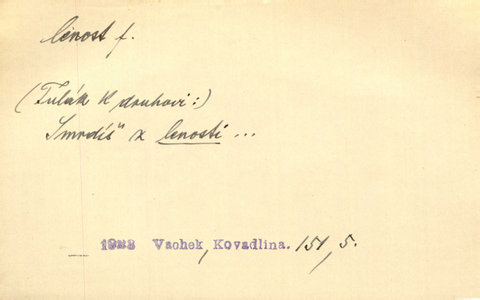 lenost f.
(Tulák k druhovi:)
Smrdíš" z lenosti ...
Vachek, Kovadlina. 151, 5.